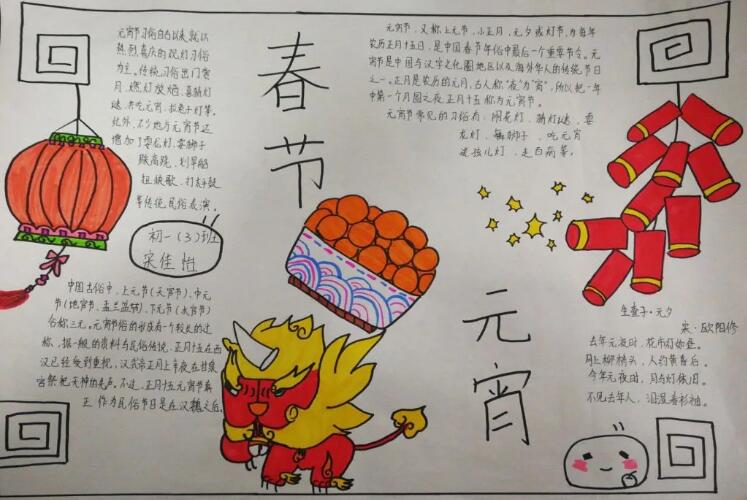 元宵节习俗自古以来就以
热烈喜庆的观灯习俗
为主。传统习俗出门赏
月、燃灯放焰、喜猜灯
谜、共吃元宵、拉兔子灯等。
此外,不少地方元宵节还
增加了耍龙灯、耍狮子
踩高跷、划旱船
扭秧歌、打太平鼓
等传统民俗表演。
初一(3)班
宋佳怡
中国古俗中,上元节(天官节)、中元
节(地官节、盂兰盆节)、下元节(水官节)
合称三元。元宵节俗的形成有一个较长的过
程,据一般的资料与民俗传说,正月十五在西
汉已经受到重视,汉武帝正月上辛夜在甘泉
宫祭祀天神的先声。不过,正月十五元宵节真
正作为民俗节日是在汉魏之后。
春节
元宵节,又称上元节、小正月、元夕或灯节,为每年
农历正月十五日,是中国春节年俗中最后一个重要节令。元
宵节是中国与汉字文化圈地区以及海外华人的传统节日
之一。正月是农历的元月,古人称“夜”为“宵”,所以把一年
中第一个月圆之夜正月十五称为元宵节。
元宵节常见的习俗有:闹花灯、猜灯谜、耍
龙灯、舞狮子、吃元宵
迎孩儿灯、走百病等。
元宵
生查子·元夕
宋·欧阳修
去年元夜时,花市灯如昼。
月上柳梢头,人约黄昏后。
今年元夜时,月与灯依旧。
不见去年人,泪湿春衫袖。